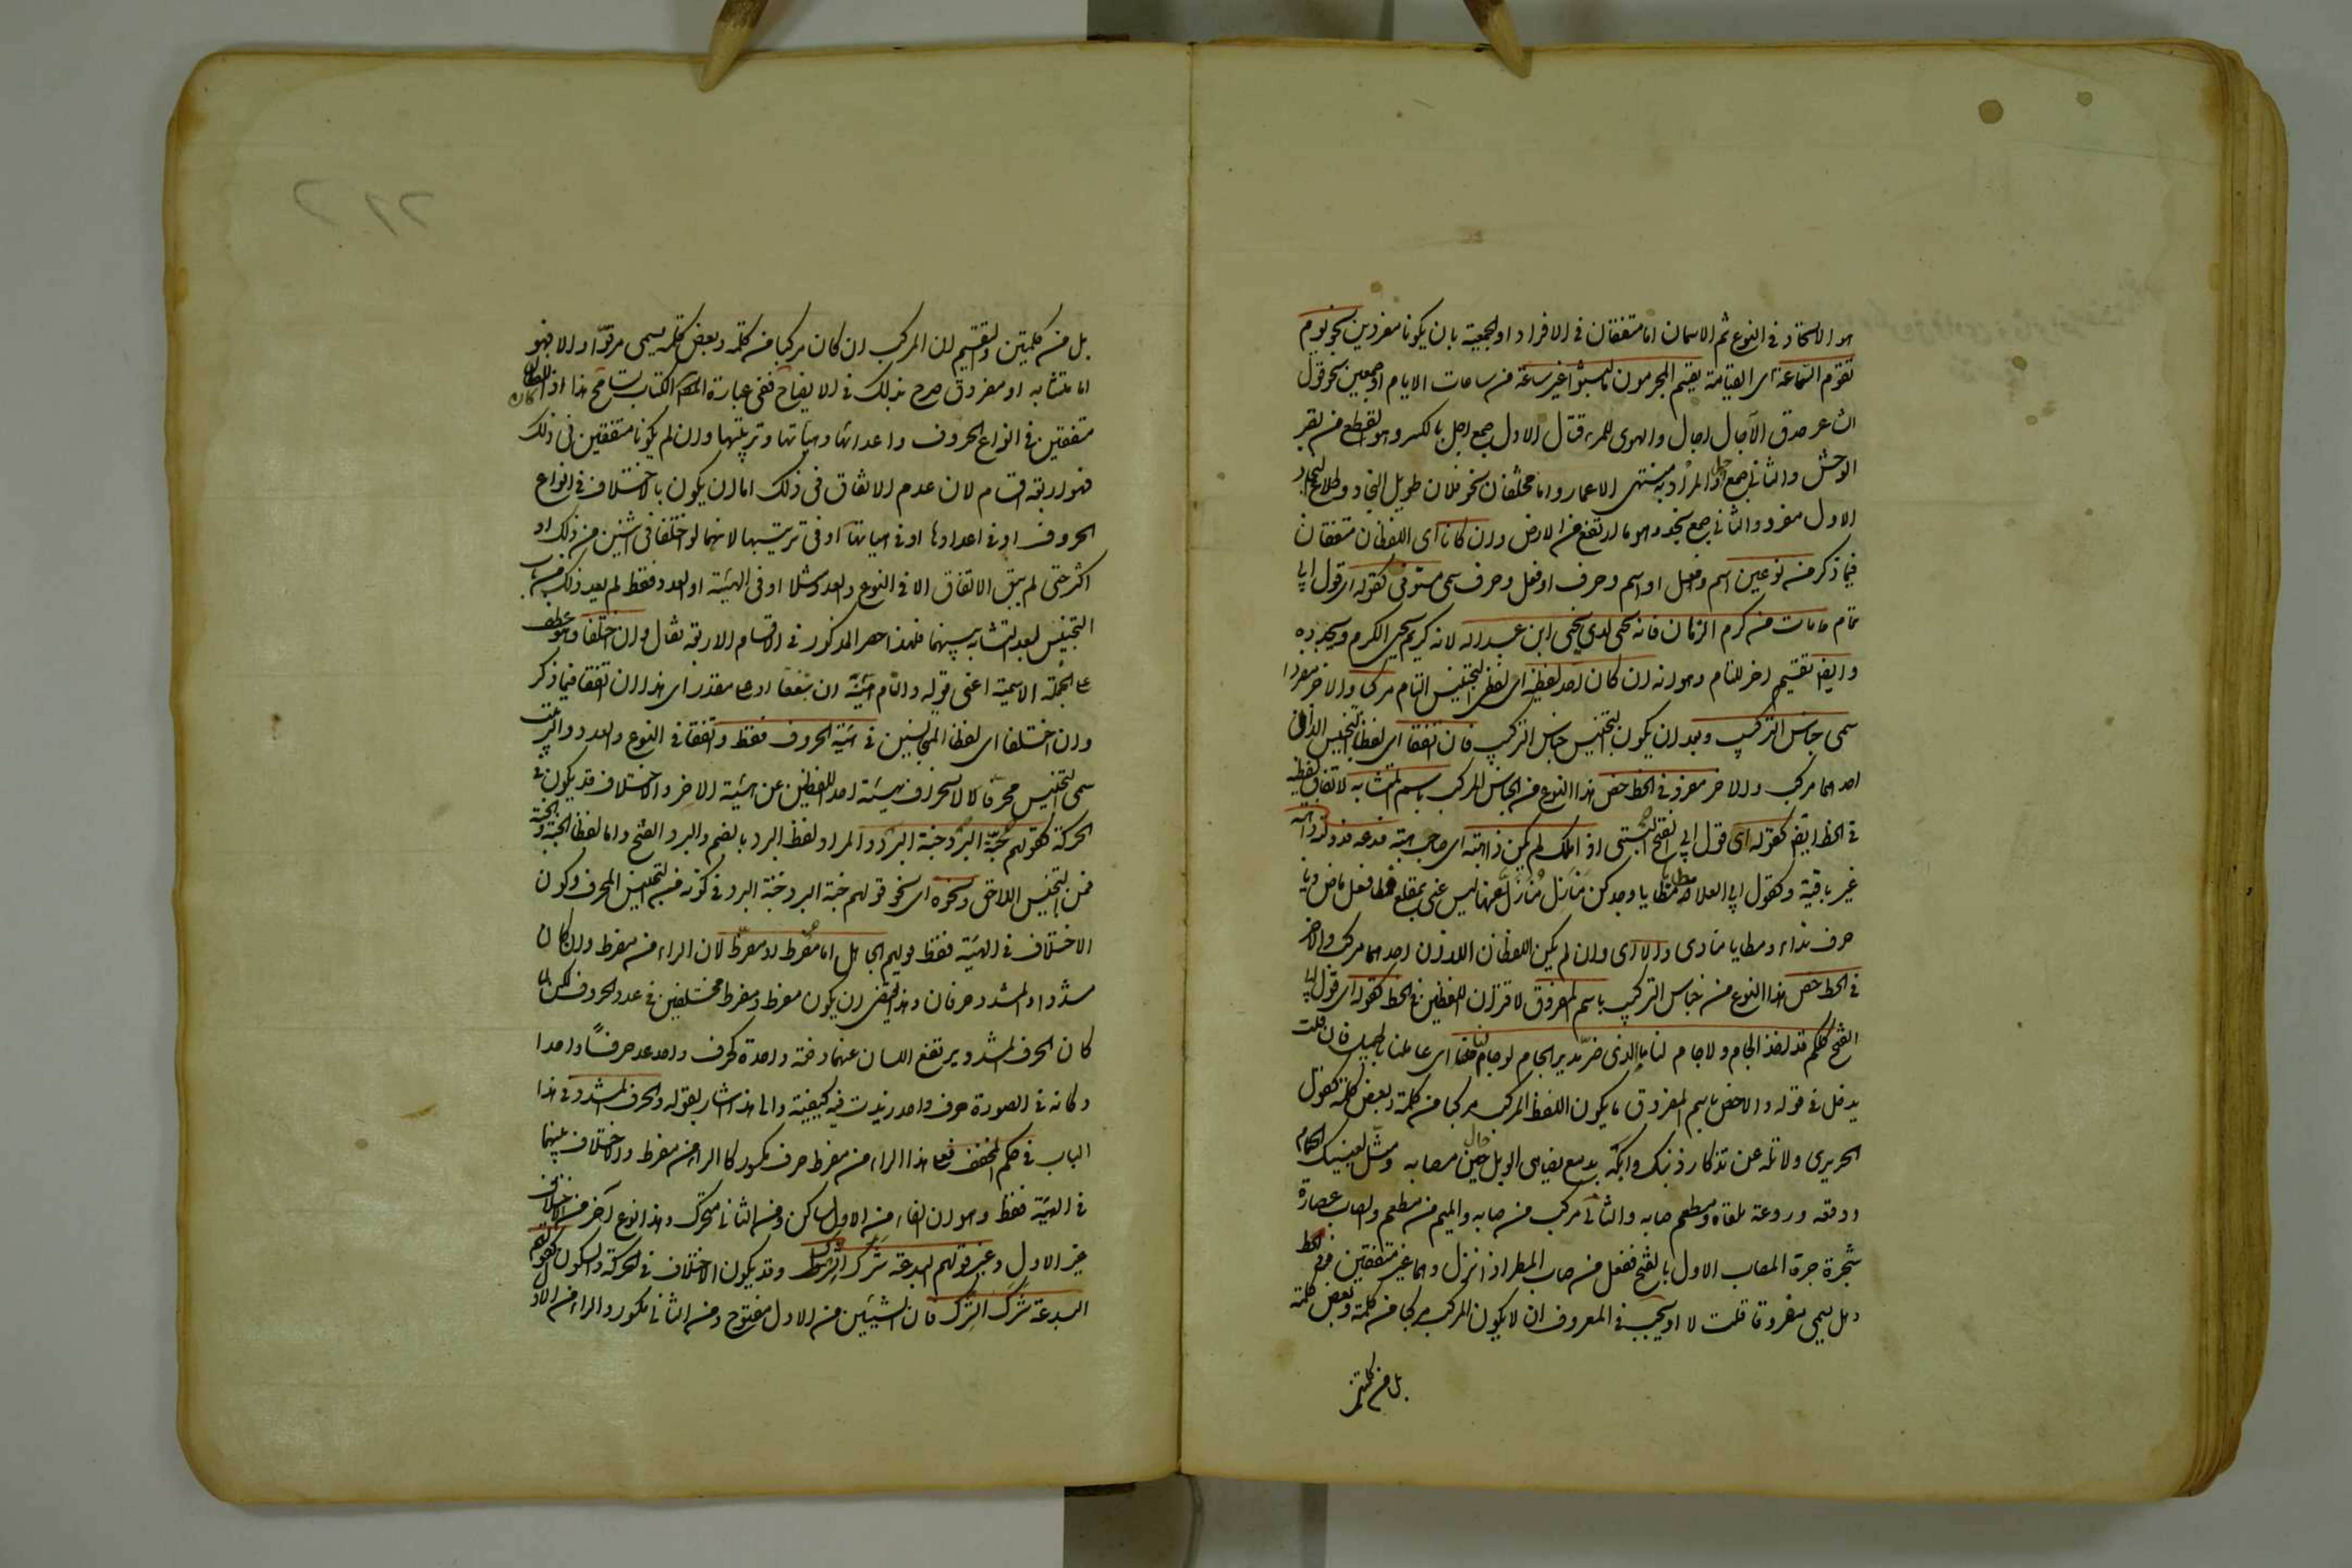 هو الاتحاد فى النوع ثم الاسمان اما متفقان فى الافراد او الجمعية بان يكونا مفردين نحو يوم
تقوم الساعة اى القيامة يقسم المجرمون ما لبثوا غير ساعة من ساعات الايام او جمعين نحو قول
الشاعر حدق الآجال اجال والهوى للمرء قتال الاول جمع اجل بالكسر وهو القطيع من بقر
الوحش والثانى جمع اجل والمراد به منتهى الاعمار واما مختلفان نحو فلان طويل النجاد وطلاع النجاد
الاول مفرد والثانى جمع نجد وهو ما ارتفع من الارض وان كانا اى اللفظان متفقان
فيما ذكر من نوعين اسم وفعل او اسم وحرف او فعل وحرف سمى مستوفى كقوله اى قول ابى
تمام ما مات من كرم الزمان فانه يحيى لدى يحيى ابن عبد الله لانه كريم يحيى الكرم ويجدده
وايضا تقسيم اخر للتام وهو انه ان كان احد لفظيه اى لفظى التجنيس التام مركبا والاخر مفردا
سمى جناس التركيب وبعد ان يكون التجنيس جناس التركيب فان اتفقا اى لفظا التجنيس اللذان
احدهما مركب والاخر مفرد فى الخط خص هذا النوع من الجناس المركب باسم المتشابه لاتفاق لفظيه
فى الخط ايضا كقوله اى قول ابى الفتح البستى اذا ملك لم يكن ذا هبة اى صاحب هبة فدعه فدولته ذاهبة
غير باقية وكقول ابى العلاء مطا يا مطايا وجدكن منازل منازل عنها ليس عنى بمقلع فمطا فعل ماض ويا
حرف نداء ومطايا منادى والا اى وان لم يكن اللفظان اللذان احدهما مركب والاخر
فى الخط خص هذا النوع من جناس التركيب باسم المفروق لافتراق اللفظين فى الخط كقوله اى قول ابى
الفتح كلكم قد اخذ الجام ولا جام لنا ما الذى ضر مدير الجام لو جاملنا اى عاملنا بالجميل فان قلت
يدخل فى قوله والا خص باسم المفروق ما يكون اللفظ المركب مركبا من كلمة وبعض كلمة كقول
الحريرى ولا تله عن تذكار ذنبك وابكه بدمع يضاهى الوبل حال مصابه ومثل لعينيك الحمام
ووقعه وروعة ملقاه ومطعم صابه والثانى مركب من صابه والميم من مطعم والصاب عصارة
شجرة مرة المصاب الاول بالفتح مفعل من صاب المطر اذا نزل وهما غير متفقين فى الخط
وهل يسمى مفروقا قلت لا او يجب فى المعروف ان لا يكون المركب مركبا من كلمة وبعض كلمة
بل من كلمتين
بل من كلمتين والتقسيم ان المركب ان كان مركبا من كلمة وبعض كلمة يسمى مرفوا والا فهو
اما متشابه او مفروق صرح بذلك فى الايضاح ففى عبارة الكتاب تسامح هذا اذا كان اللفظان
متفقين فى انواع الحروف واعدادها وهياتها وترتيبها وان لم يكونا متفقين فى ذلك
فهو اربعة اقسام لان عدم الاتفاق فى ذلك اما ان يكون بالاختلاف فى انواع
الحروف او فى اعدادها او فى هياتها او فى ترتيبها لانهما لو اختلفا فى اثنين من ذلك او
اكثر حتى لم يبق الاتفاق الا فى النوع والعدد مثلا او فى الهيئة او العدد فقط لم يعد ذلك من باب
التجنيس لبعد التشابه بينهما فلهذا حصر المذكور فى الاقسام الاربعة فقال وان اختلفا وهو عطف
على الجملة الاسمية اعنى قوله والتام منه ان يتفقا او على مقدر اى هذا ان اتفقا فيما ذكر
وان اختلفا اى لفظا المتجانسين فى هيئة الحروف فقط واتفقا فى النوع والعدد والترتيب
سمى التجنيس محرفا لانحراف هيئة احد اللفظين عن هيئة الاخر والاختلاف قد يكون فى
الحركة كقولهم جبة البرد جنة البرد والمراد لفظ البرد بالضم والبرد الفتح واما لفظا الجبة والجنة
فمن التجنيس اللاحق ونحوه اى نحو قولهم جبة البرد جنة البرد فى كونه من التجنيس المحرف وكون
الاختلاف فى الهيئة فقط قولهم الجاهل اما مفرط او مفرّط لان الراء من مفرط وان كان
مشددا والمشدد حرفان وهذا يقتضى ان يكون مفرط ومفرط مختلفين فى عدد الحروف لكن لما
كان الحرف المشدد يرتفع اللسان عنهما دفعة واحدة كحرف واحد عد حرفاً واحدا
وكانه فى الصورة حرف واحد زيدت فيه كيفية والى هذا اشار بقوله والحرف المشدد فى هذا
الباب فى حكم المخفف فعلى هذا الراء من مفرط حرف مكسور كالراء من مفرط والاختلاف بينهما
فى الهيئة فقط وهو ان الفاء من الاول ساكن ومن الثانى متحرك وهذا نوع آخر من الاختلاف
غير الاول وغير قولهم البدعة شرك الشرك وقد يكون الاختلاف فى الحركة والسكون كقولهم
البدعة شرك الشرك فان الشين من الاول مفتوح ومن الثانى مكسور والراء من الاول